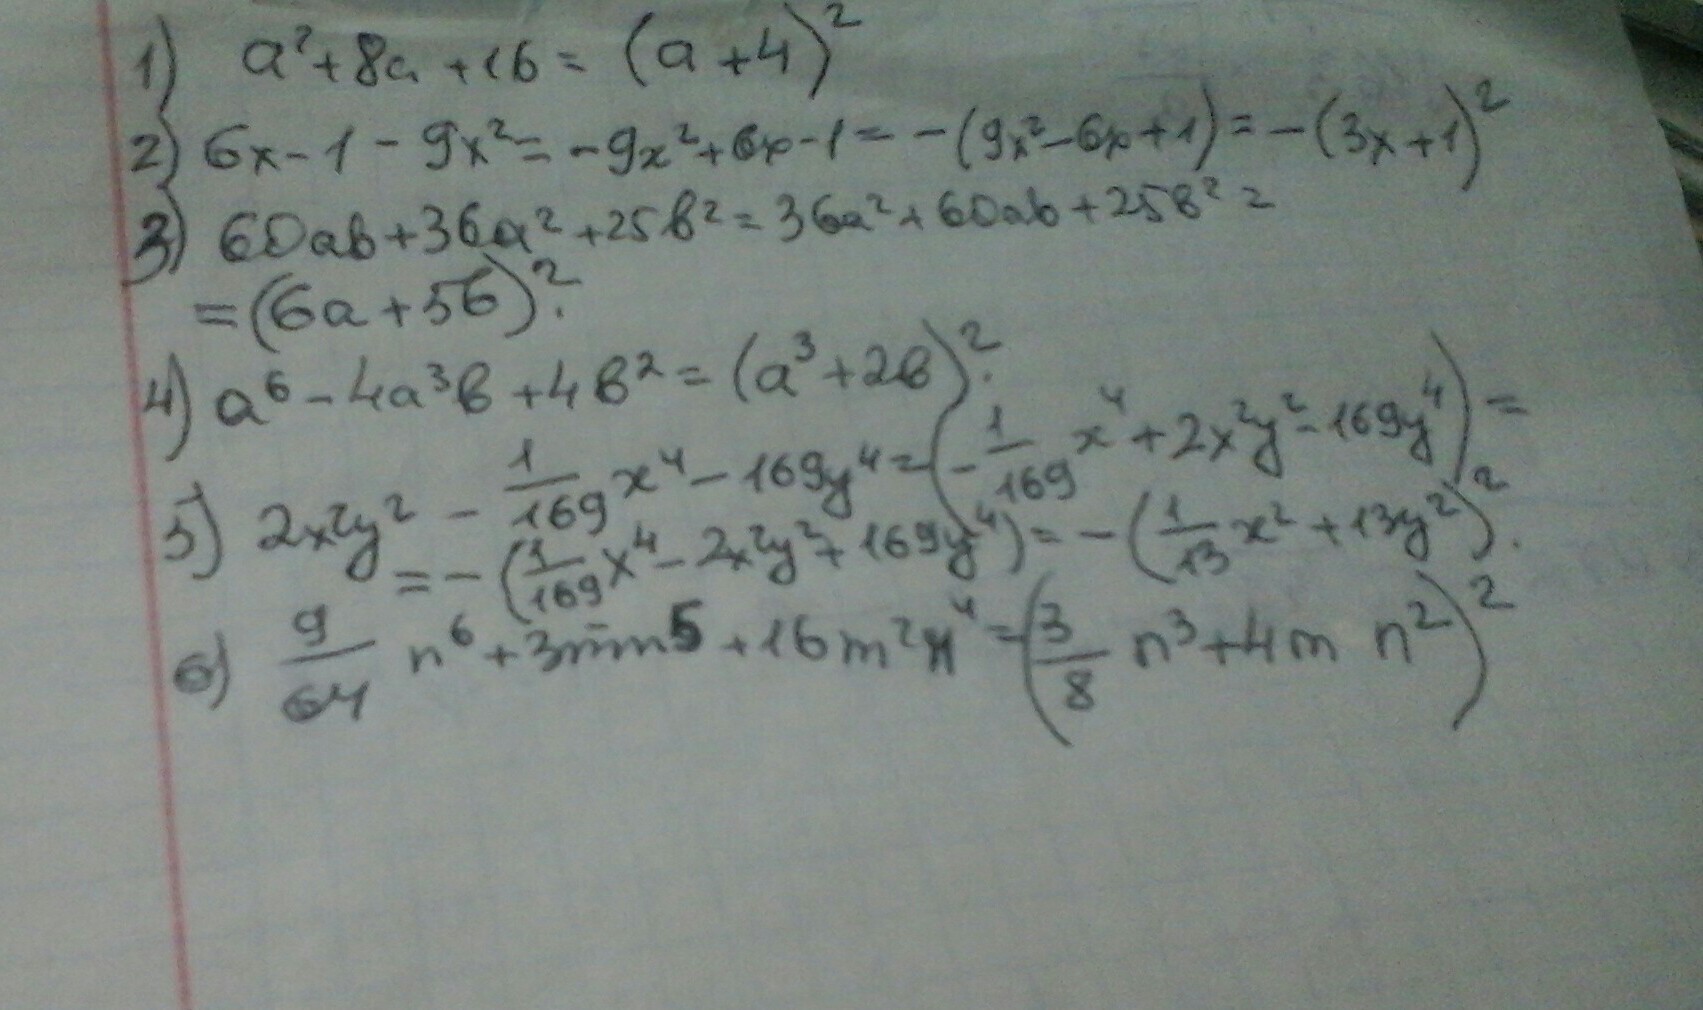 1) a²+8a+16=(a+4)²
2) 6x-1-9x²=-9x²+6x-1=-(9x²-6x+1)=-(3x+1)²
3) 60ab+36a²+25b²=36a²+60ab+25b²=
=(6a+5b)².
4) a⁶-4a³b+4b²=(a³+2b)².
5) 2x²y²-1/169x⁴-169y⁴=(-1/169x⁴+2x²y²-169y⁴)=
=-(1/169x⁴-2x²y²+169y⁴)=-(1/13x²+13y²)².
6) 9/64n⁶+3mn5+16m²n⁴=(3/8n³+4mn²)²